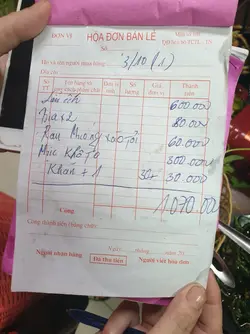 ĐƠN VỊ HÓA ĐƠN BÁN LẺ
3/10 (1)
Họ và tên người mua hàng
Địa chỉ
Số TT Đơn vị tính Số lượng Giá đơn vị Thành tiền
600.000
80.000
Rau Muống xào Tỏi 60.000
Mực Khô To 300.000
Khăn + 1 30 30.000
Cộng 1070.000
Cộng thành tiền (bằng chữ)
Ngày tháng năm 20
Người nhận hàng Đã thu tiền Người viết hóa đơn